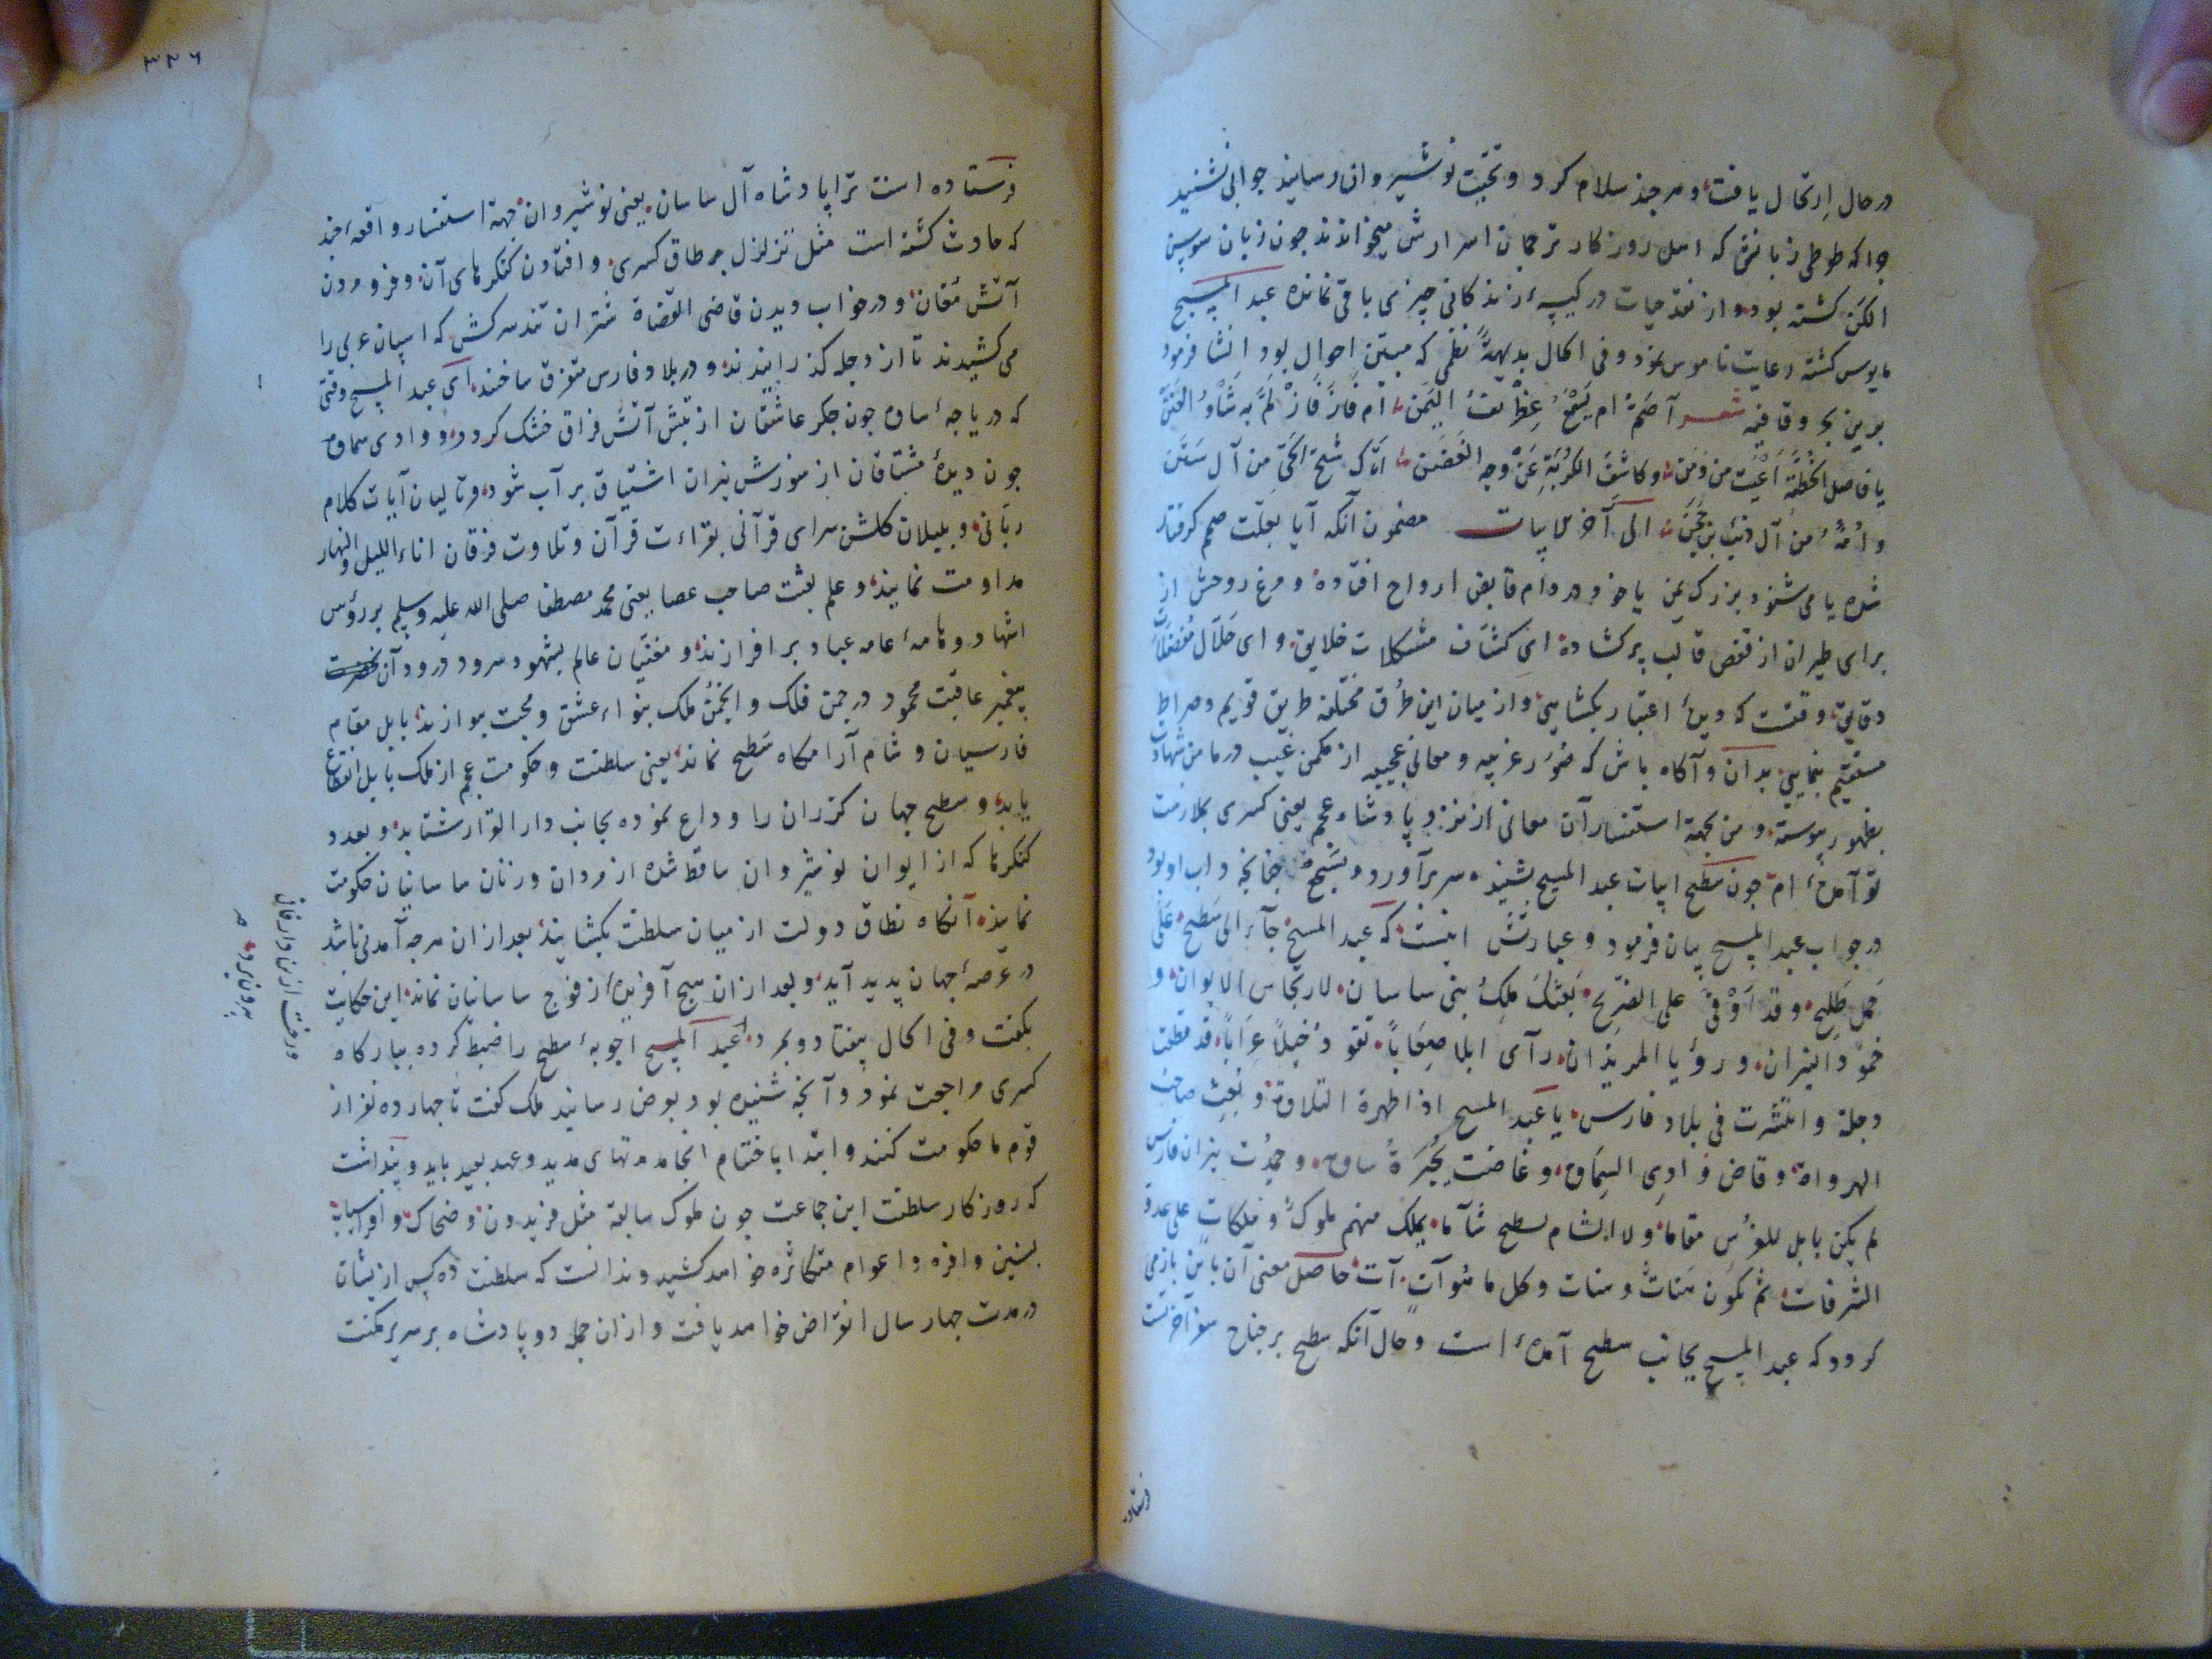 در حال ارتحال یافت و هرچند سلام کرد و تحیّت نوشیروان رسانید جوابی نشنید
چرا که طوطی زبانش که اهل روزکار ترجمان اسرارش میخواندند چون زبان سوسن
الکن کشته بود و از نقد حیات در کیسهٔ زندکانی چیزی باقی نمانده عبد المسیح
مایوس کشته رعایت ناموس نمود و فی الحال بدیههً نظمی که مبیّن احوال بود انشا فرمود
برین بحر و قافیه شعر آصَمُّ ام یَسْمَعُ غِطْرِیفُ الیَمَن ام فازَ فَازْلَمَّ بِه شَاْوُ العَنَن
یا فاصل الخُطّةِ اَعْیَت من وَمَن و کاشِفَ الکُرْبَةِ عَنْ وجه الغَضَن اتاک شیخ الحَیّ من آل سَنَن
و اُمّهُ من آل ذئب بن حَجَن الی آخر الابیات مضمون آنکه آیا بعلّت صمم کرفتار
شده یا می شنود بزرک یمن یا خود در دام قابض ارواح افتاده و مرغ روحش از
برای طیران از قفص قالب پر کشاده ای کشّاف مشکلات خلایق و ای حلّال مُعضلات
دقایق وقتست که دیدهٔ اعتبار بکشایی و از میان این طُرق مختلفه طریق قویم و صراط
مستقیم بنمایی بدان و آکاه باش که صُوَر غریبه و معانی عجیبه از مکمن غیب در مامن شهادت
بظهور پیوسته و من بجهة استفسار آن معانی از نزد پادشاه عجم یعنی کسری بملازمت
تو آمدهٔ ام چون سَطیح ابیات عبد المسیح بشنید سر برآورد و بسَجع چنانچه داب او بود
در جواب عبد المسیح بیان فرمود و عبارتش اینست که عبد المسیح جآء الی سَطیح عَلَی
جَمَل طَلِیح و قد اَوْفیَ علی الضَرِیح بَعَثَکَ مَلِکُ بنی ساسان لارتجاس الایوان و
خمود النیران و رؤیا الموبذان رآی ابلا صِعَاباً تقودُ خیلاً عِرَاباً قد قطعت
دجلة و انتشرت فی بلاد فارس یا عبد المسیح اذا ظهرة التلاوة و بُعِث صاحب
الهرواة و فاض وَادِی السِمَاوه و غاضت بُحَیْرَةُ ساوه و خمِدُت نیران فارس
لم یکن بابل للفُرس مقاما و لا الشام لسطیح شآما یملک منهم ملوکٌ و ملکات علی عدد
الشرفات ثم تکون هَنات و هنات و کل ما هُو آتٍ آت حاصل معنی آن باین باز می
کردد که عبد المسیح بجانب سطیح آمدهٔ است و حال آنکه سطیح بر جناح سفر آخرتست
فرستاده
۳۲۶
فرستاده است ترا پادشاه آل ساسان یعنی نوشیروان جهة استفسار واقعهٔ چند
که حادث کشته است مثل تزلزل بر طاق کسری و افتادن کنکرهای آن و فرو مردن
آتش مُغان و در خواب دیدن قاضی القضاة شتران تند سرکش که اسپان عربی را
می کشیدند تا از دجله کذرانیدند و در بلاد فارس متفرق ساختند ای عبد المسیح وقتی
که دریاچهٔ ساوه چون جکر عاشقان از تبش آتش فراق خشک کردد و وادی سماوه
چون دیدهٔ مشتاقان از سوزش نیران اشتیاق پر آب شود و تالیان آیات کلام
ربّانی و بلبلان کلشن سرای قرآنی بقراءت قرآن و تلاوت فرقان اناء اللیل و النهار
مداومت نمایند و علم بعثت صاحب عصا یعنی محمد مصطفا صلی الله علیه وسلم بر رؤس
اشهاد و هامهٔ عامه عباد برافرازند و مغنّیان عالم بشهود سرود درود آن
پیغمبر عاقبت محمود در چمن فلک و انجمُن مُلک بنواء عشق و محبت بنوازند بابل مقام
فارسیان و شام آرامکاه سَطیح نماند یعنی سلطنت و حکومت عجم از ملک بابل انقطاع
یابد و سطیح جهان کذران را وداع نموده بجانب دار القرار شتابد و بعدد
کنکرها که از ایوان نوشیروان ساقط شده از مردان و زنان ساسانیان حکومت
نمایند آنکاه نطاق دولت از میان سلطنت بکشایند بعد ازان هرچه آمدنی باشد
در عَرصهٔ جهان پدید آید و بعد ازان هیچ آفریدهٔ از فوج ساسانیان نماند این حکایت
بکفت و فی الحال بیفتاد و بمرد عبد المسیح اجوبهٔ سطیح را ضبط کرده ببارکاه
کسری مراجعت نمود و آنچه شنیده بود بعرض رسانید ملک کفت تا چهارده نفر از
قوم ما حکومت کنند و ابتدا با ختتام انجامد مدتهای مدید و عهد بعید باید و پنداشت
که روزکار سلطنت این جماعت چون ملوک سالفة مثل فریدون و ضحاک و افراسیاب
بسنین وافره و اعوام متکاثره خواهد کشید و ندانست که سلطنت ده کس از یشان
در مدت چهار سال انقراض خواهد یافت و ازان جمله دو پادشاه بر سریر مکنت
ورخت ازین دار فانی
بیرون برد صح